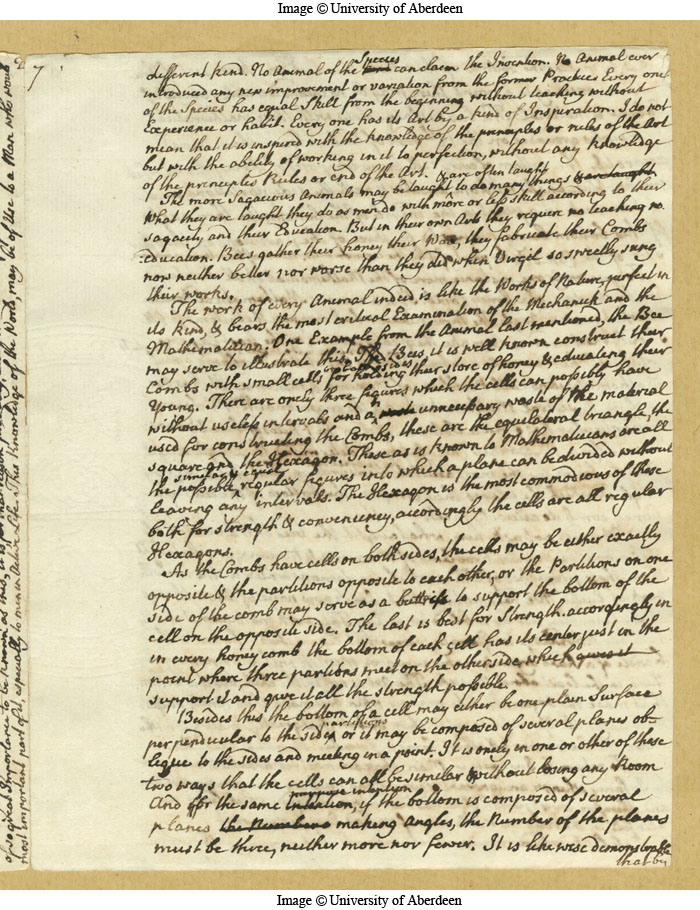 Image © University of Aberdeen
7
different kind. No Animal of the Species kind can claim the Invention. No Animal ever
introduced any new improvement or variation from the former Practice Every one
of the Species has equal Skill from the beginning without teaching without
Experience or habit. Every one has its Art by a kind of Inspiration. I do not
mean that it is inspired with the knowledge of the principles or rules of the Art
but with the ability of working in it to perfection, without any knowledge
of the principles Rules or end of the Art.
The more Sagacious Animals may be taught to do many things & are often taught
What they are taught they do as men do with more or less skill according to their
sagacity and their Education. But in their own Arts they require no teaching no
education. Bees gather their honey their Wax, they fabricate their Combs
now neither better nor worse than they did when Virgil so sweetly sung
their works.
The work of every Animal indeed is like the Works of Nature, perfect in
its kind, & bears the most critical Examination of the Mechanick and the
Mathematician. One Example from the Animal last mentioned, the Bee
may serve to illustrate this. The Bees, it is well known construct their
Combs with small cells on both sides for holding their store of honey & educating their
Young. There are onely three figures which the cells can possibly have
without useless intervals and a unnecessary waste of the material
used for constructing the Combs, these are the equilateral triangle, the
square and the Hexagon. These as is known to Mathematicians are all
the possible regular figures into which a plane can be divided without
leaving any intervals. The Hexagon is the most commodious of these
both for strength & conveniency, accordingly the cells are all regular
Hexagons.
As the Combs have cells on both sides, the cells may be either exactly
opposite & the partitions opposite to each other, or the Partitions on one
side of the comb may serve as a buttrise to support the bottom of the
cell on the opposite side. The last is best for Strength. accordingly, in
in every honey comb the bottom of each cell has its center just in the
point where three partions meet on the other side, which gives it
support it and give it all the strength possible.
Besides this the bottom of a cell may either be one plain surface
perpendicular to the side partitions or it may be composed of several planes ob-
lique to the sides and meeting in a point. It is onely in one or other of these
two ways that the cells can all be similar & without losing any Room
And for the same Intention purpose intention, if the bottom is composed of several
planes the Number making Angles, the Number of the planes
must be three, neither more nor fewer. It is likewise demonstrable
that by
of so great Importance to be known as this, it is
most important part of it, especially to men in Active Life. This knowledge of the World, may be of Use to a Man who would
Image © University of Aberdeen